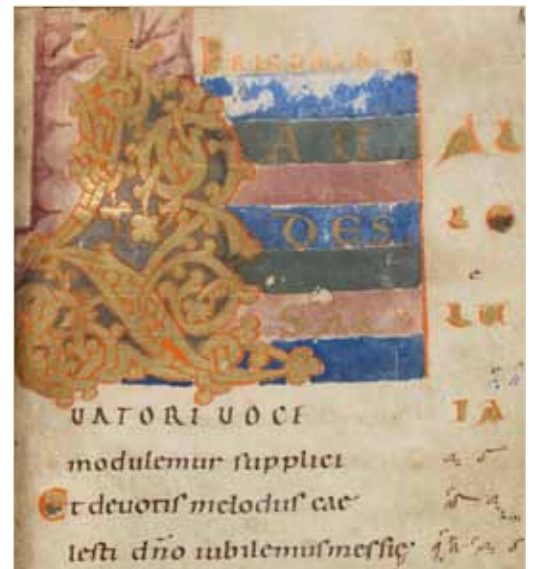 LAU
DES
SAL
UATORI UOCE
modulemur supplici
Et deuotis melodiis cae
lesti dño iubilemus messię
AL
LE
e
LU
IA